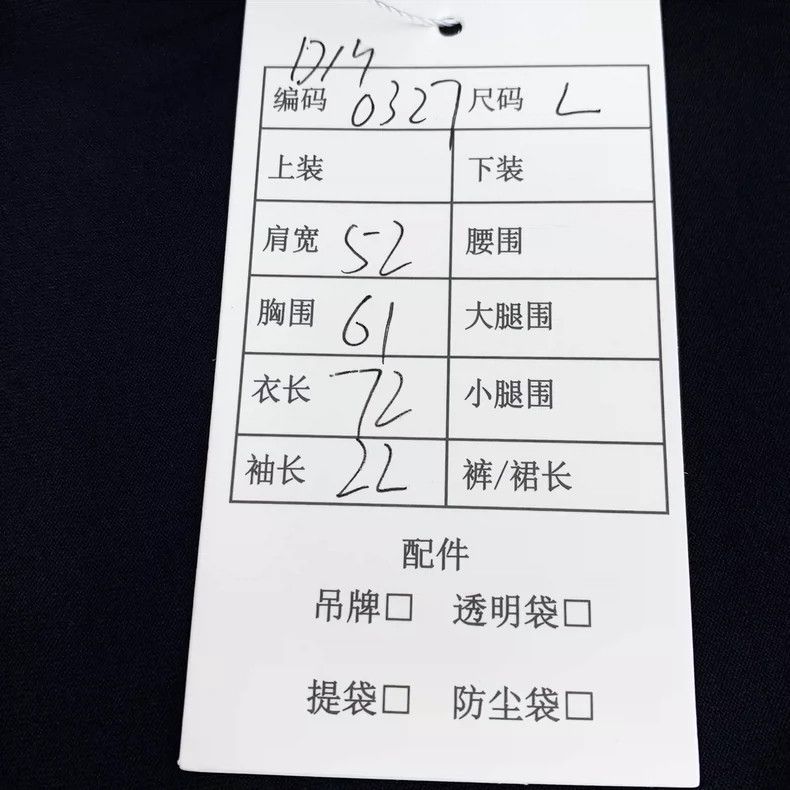 D14
编码 0327 尺码 L
上装 下装
肩宽 52 腰围
胸围 61 大腿围
衣长 72 小腿围
袖长 22 裤/裙长
配件
吊牌□ 透明袋□
提袋□ 防尘袋□